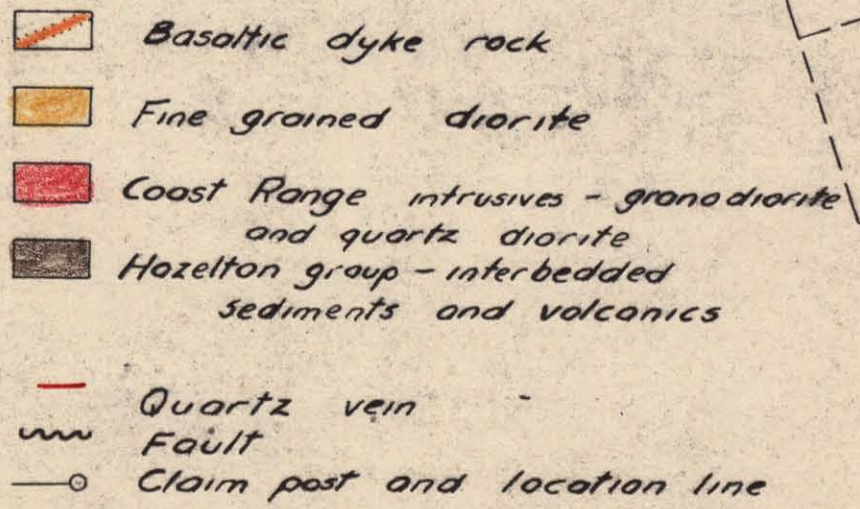 Basaltic dyke rock
Fine grained diorite
Coast Range intrusives - granodiorite
and quartz diorite
Hazelton group - interbedded
sediments and volcanics
Quartz vein
Fault
Claim post and location line